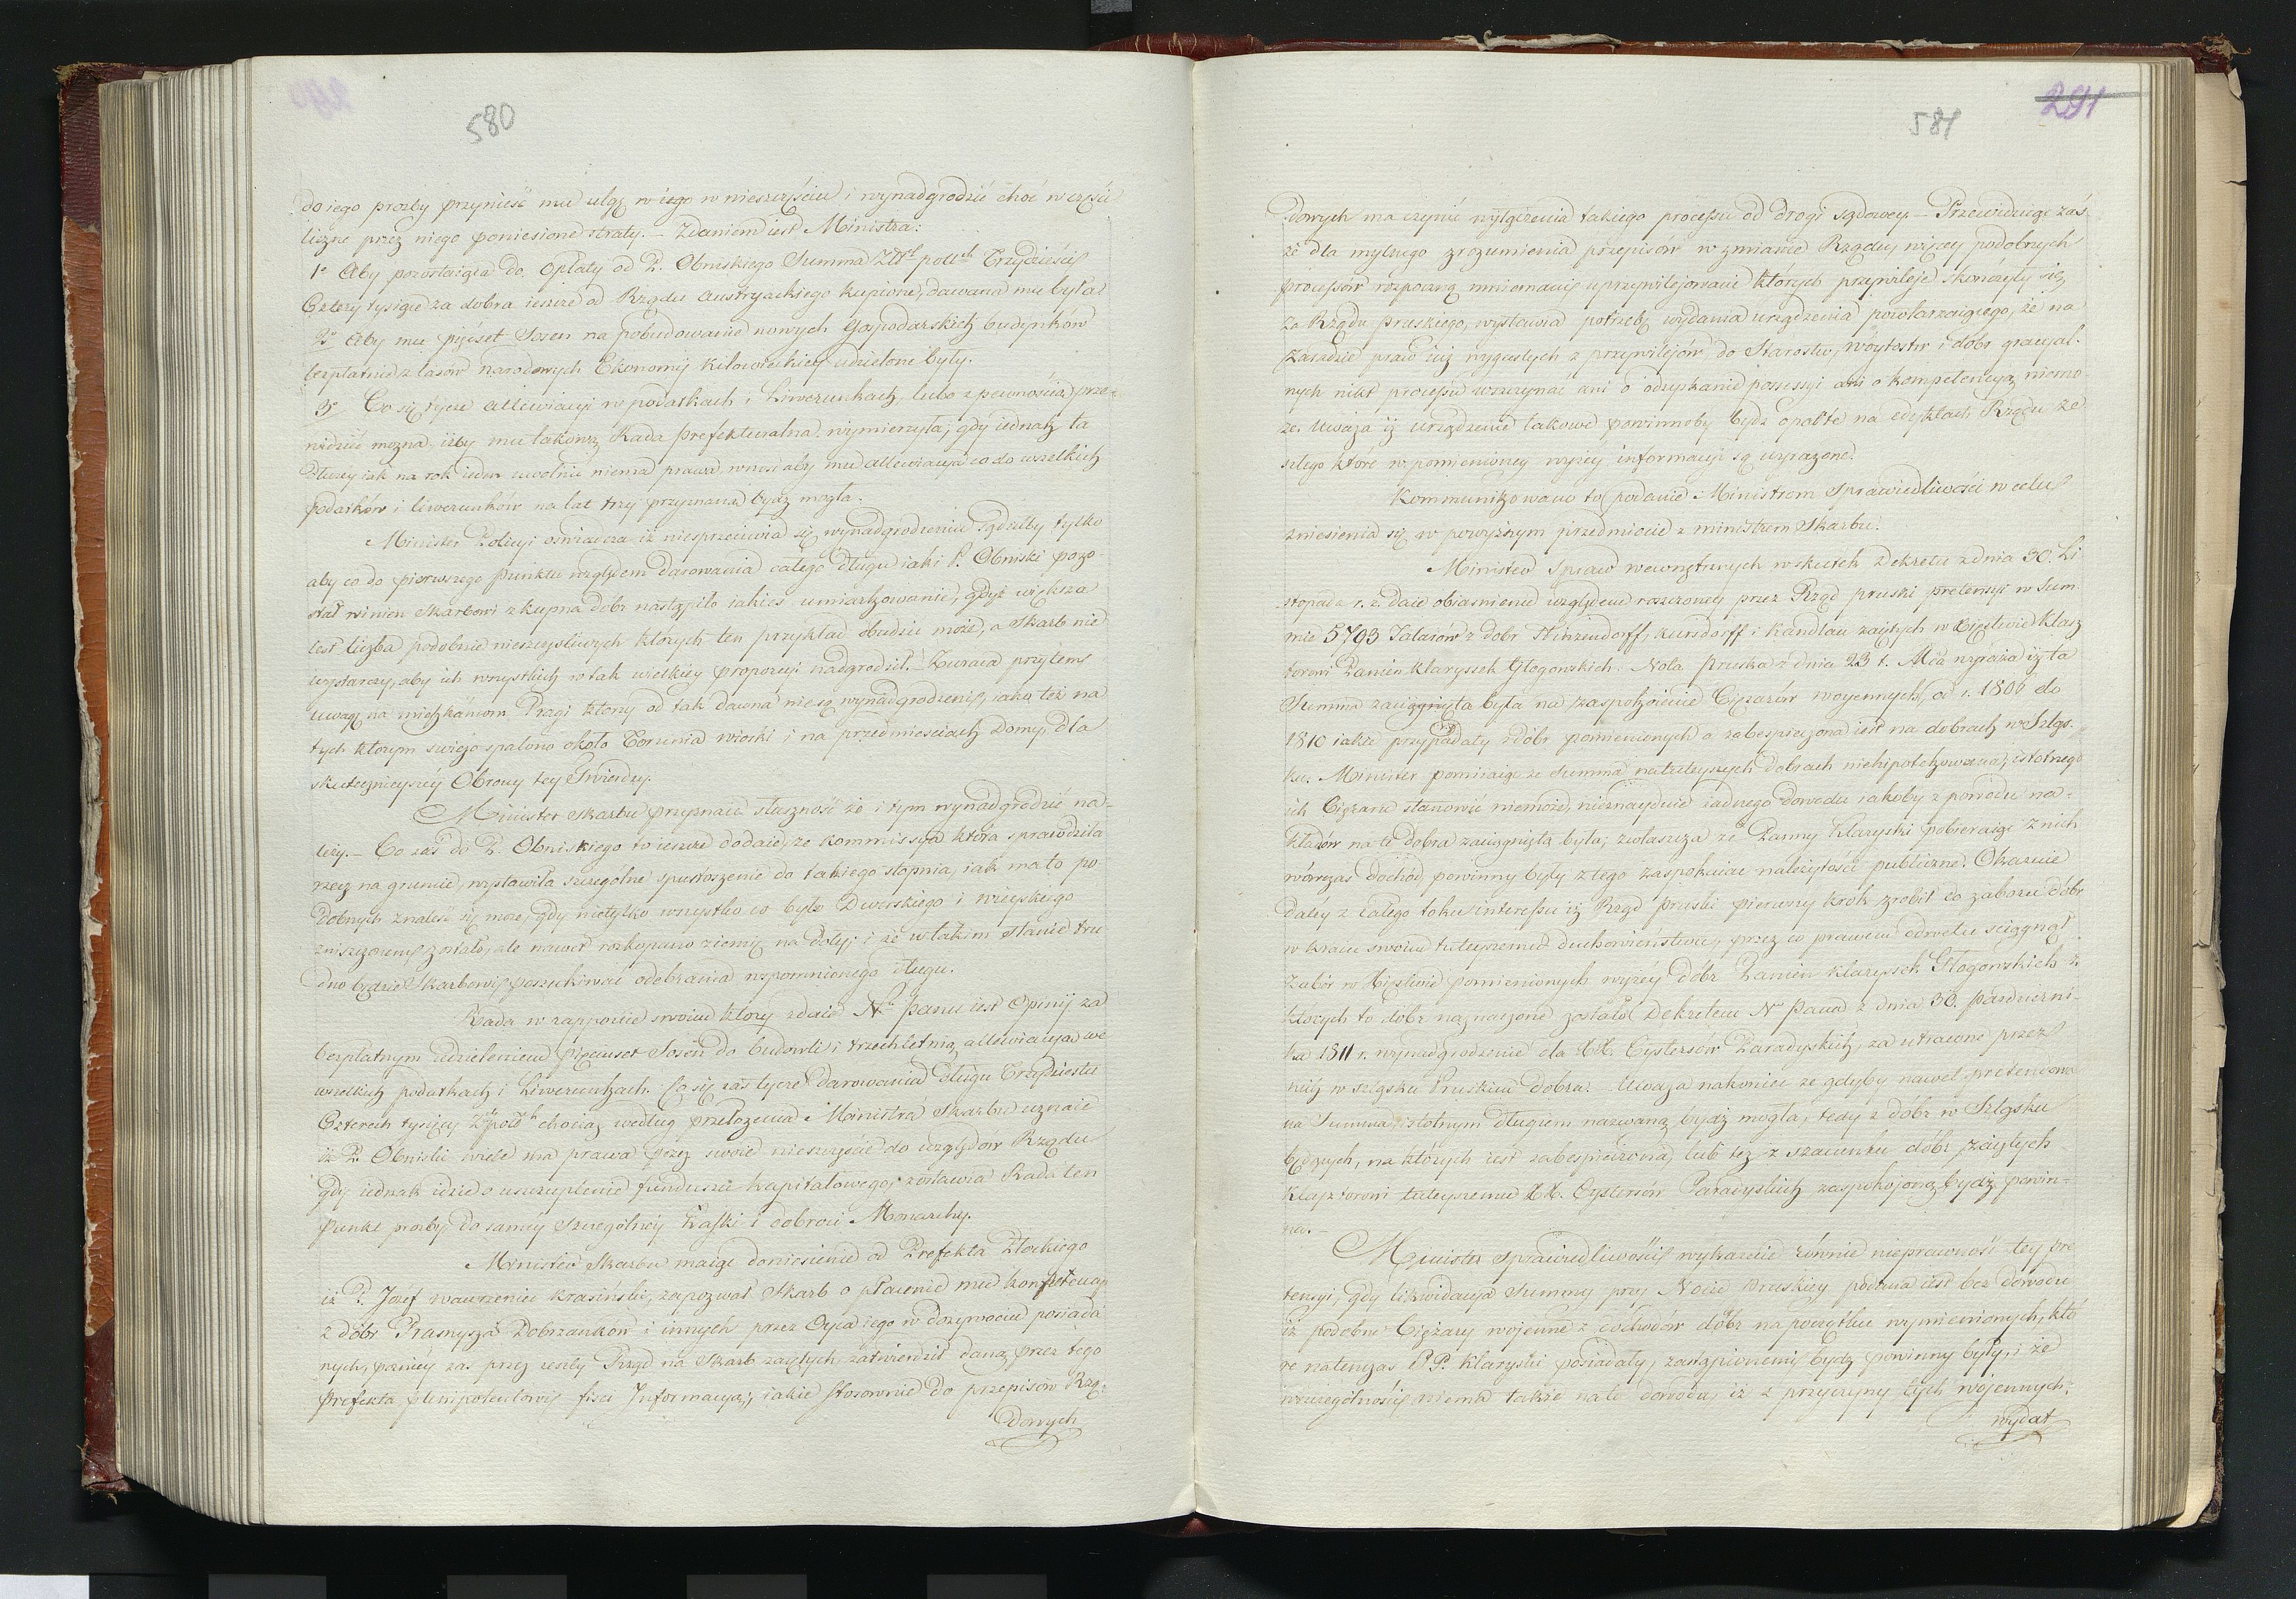 580
do iego prozby przynieść mu ulgę w iego w nieszczęściu i wynadgrodzić choć w części
liczne przez niego poniesione straty. – Zdaniem iest Ministra:
1o Aby pozostaiąca do opłaty od P. Obniskiego Summa Trzydzieści
Cztery tysiące za dobra ieszcze od Rządu Austryackiego kupione, darowana mu była
2o Aby mu pięćset Sosen na pobudowanie nowych Gospodarskich budynków
bezpłatnie z lasów narodowych Ekonomij udzielone były.
3o Co się tycze allewiacyi w podatkach i Liwerunkach, lubo z pewnością prze-
widzieć mozna, iżby mu takową Rada Prefekturalna wymierzyła; gdy iednak ta
dłużey iak na rok ieden uwolnić niema prawa wnosi aby mu allewiacya co do wszelkich
podatków i liwerunków na lat trzy przyznana bydź mogła.
Minister Policyi oświadcza iż niesprzeciwia się wynadgrodzeniu gdziby tylko
aby co do pierwszego punktu względem darowania całego długu iaki P. Obniski pozo-
stał winien Skarbowi z kupna dobr nastąpiło iakieś umiarkowanie, gdyż większa
iest liczba podobnie nieszczęśliwych których ten przykład obudzić może, a Skarb nie
wystarczy, aby ich wszystkich w tak wielkiey proporcyi nadgrodził. – Zwraca przytem
uwagę na mieszkańcom Pragi ktory od tak dawna nie są wynadgrodzeni, iako też na
tych ktorym swieżo spalono około Torunia wioski i na przedmieściach Domy, dla
skutecznieyszey Obrony tey Twierdzy.
Minister Skarbu przyznaie słuszność że i tym wynadgrodzić na-
leży. – Co zaś do P. Obniskiego to ieszcze dodaie, że kommissya ktora sprawdziła
rzecz na gruncie, wystawiła szczegolne spustoszenie do takiego stopnia, iak mało po
dobnych znaleść się może, gdy nietylko wszystko co było Dworskiego i wieyskiego
zniszczonem zostało, ale nawet rozkopano ziemię na doły; i że w takim stanie tru
dno będzie Skarbowi poszukiwać odebrania wspomnionego długu.
Rada w rapporcie swoim ktory zdaie N. Panu iest Opinij za
bezpłatnym udzieleniem pięciuset Sosen do budowli i trzechletnią allewiacyą we
wszelkich podatkach i Liwerunkach. Co się zaś tycze darowania długu Trzydziestu
Czterech tysięcy chociaż według przełożenia Ministra Skarbu uznaie
iż P. Obniski wiele ma prawa przez swoie nieszczęście do względów Rządu
gdy iednak idzie o uszczuplenie funduszu kapitałowego, zostawia Rada ten
punkt prozby do samey szczegolney Łaski i dobroci Monarchy.
Minister Skarbu maiąc doniesienie od Prefekta Płockiego
iż P. Józef Wawrzeniec Krasiński, zapozwał Skarb o płacenie mu kompetencyi
z dobr Prasnysza Dobrzankow i innych przez Oyca iego w dozywociu posiada
nych, poźniey zas przez zeszły Rząd na Skarb zaiętych, zatwierdził daną przez tego
Prefekta plenipotentowi fisci Informacyą, iakie stosownie do przepisow Rzą-
dowych
291
581
dowych ma czynić wyłączenia takiego processu od drogi Sądowey. – Przewiduiąc zaś
że dla mylnego zrozumienia przepisow w zmianie Rządu, więcey podobnych
processow rozpoczną mniemani uprzywilejowani ktorych przywileje skończyły się
za Rządu Pruskiego, wystawia potrzebę wydania urządzenia powtarzaiącego, że na
zasadzie praw iuż wygasłych z przywilejow do Starostw, Wóytostw i dobr gracyal-
nych nikt processu wszczynać ani o odzyskanie possessyi ani o kompetencyą niemo-
że. Uważa iż urządzenie takowe powinnoby bydź oparte na edyktach Rządu ze
szłego które w pomienioney wyżey informacyi są wyrażone.
Kommunikowano to podanie Ministrom Sprawiedliwości w celu
zniesienia się w powyższym przedmiocie z ministrem Skarbu.
Minister Spraw wewnętrznych w skutek Dekretu z dnia 30. Li
stopada r. z. daie obiaśnienie względem roszczoney przez Rząd pruski pretensyi w Sum
mie 5793 Talarów z dobr Hinzendorff, Kursdorff i Kandlau zaiętych w Xięstwie Klasz
torowi Panien Klaryssek Głogowskich. Nota Pruska z dnia 23 t. Mca wyraża iż ta
Summa zaciągnięta była na zaspokoienie Cięzarów woyennych, od r. 1806 do
1810 iakie przypadały z dóbr pomienionych a zabespieczona iest na dobrach w Szląs-
ku. Minister pomniaiąc że Summa na tuteyszych dobrach niehipotekowana, istotnego
ich Ciężaru stanowić niemoże, nieznayduie żadnego dowodu iakoby z powodu na-
kładów na te dobra zaciągnięta była; zwłaszcza że Panny Klaryski pobieraiąc z nich
wówczas dochód powinny były z tego zaspokaiać należytości publiczne. Okazuie
daley z całego toku interessu iż Rząd pruski pierwszy krok zrobił do zaboru dóbr
w kraiu swoim tuteyszemu duchowieństwu, przez co prawem odwetu ściągnął
Zabór w Xięstwie pomienionych wyżey dóbr Panien Klarysek Głogowskich z
ktorych to dóbr naznaczone zostało Dekretem N. Pana z dnia 30. Październi-
ka 1811 r. wynadgrodzenie dla XX. Cystersów Paradyskich, za utracone przez
nich w Szląsku Pruskim dobra. Uważa nakoniec że gdyby nawet pretendowa
na Summa istotnym długiem nazwaną bydź mogła, tedy z dóbr w Szląsku
będących, na których iest zabespieczona, lub też z szacunku dóbr zaiętych
Klasztorowi tuteyszemu XX. Cystersów Paradyskich zaspokojoną bydź powin-
na. –
Minister Sprawiedliwości wykazuie równie nieprawność tey pre
tensyi, gdy likwidacya Summy przy Nocie Pruskiey podana iest bez dowodu
iż podobne Ciężary wojenne z dochodów dóbr na początku wymienionych, któ
re natenczas PP. Klaryski posiadały, zastąpionemi bydź powinny były, i że
wszczególności niema także na to dowodu, iż z przyczyny tych wojennych
wydat